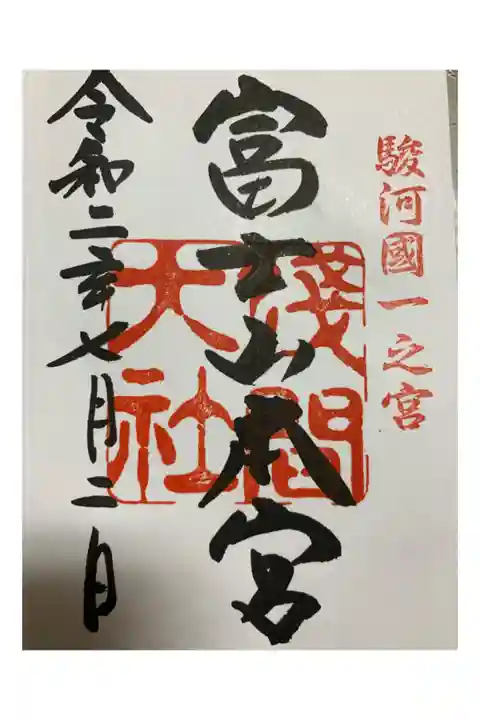 駿河國一之宮
富士山本宮
淺間大社
令和二年七月二日